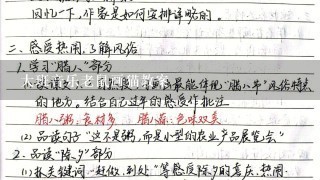 回忆一下,作家是如何安排详略的。
二、感受热闹,了解风俗
1.学习"腊八"部分
(1)读课文 最能体现"腊八节"风俗特点
的地方。结合自己过年的感受作批注
腊八粥:食材多 腊八蒜:色味双美
(2)品读句子"这不是粥,而是小型的农业产品展览会"
2.品读"除夕"部分
(1)抓关键词"赶做、到处"等感受除夕的喜庆、热闹